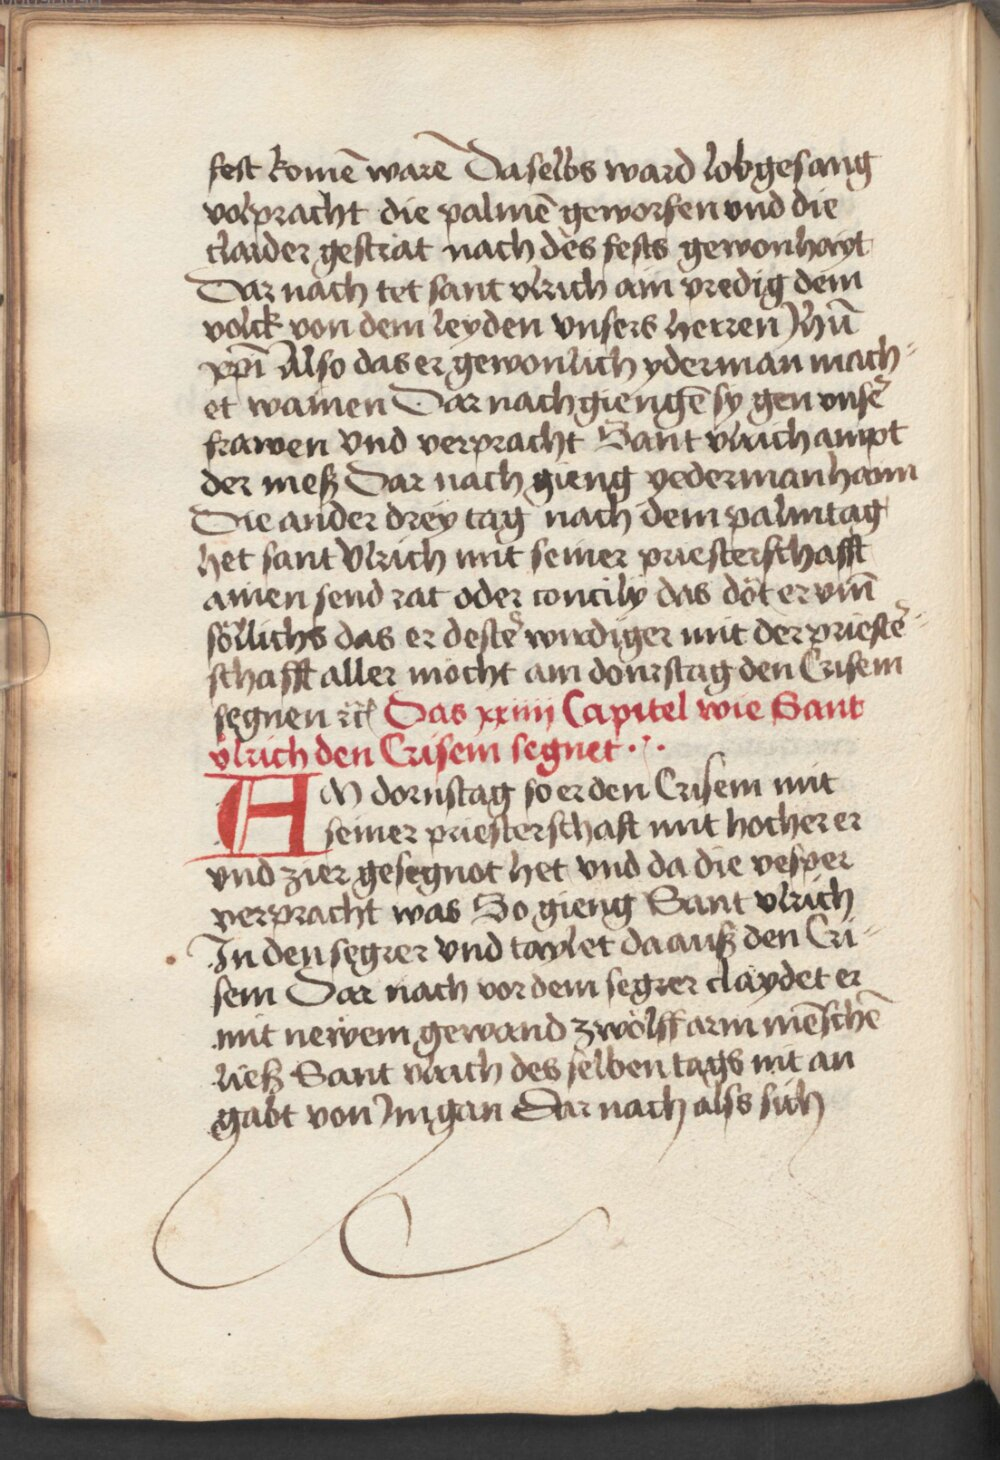 fest komē warē Daselbs ward lobgesang
volpracht die palmē geworfen vnd die
claider gestrat nach des fests gewonhayt
Dar nach tet sant vlrich ain predig dem
volck von dem leyden vnsers herren Jhū
xpī Also das er gewonlich yderman mach⸗
et wainen Dar nach giengē sy gen vnser
frawen vnd verpracht Sant vlrich ampt
der meß Dar nach gieng yederman haim
Die ander drey tag nach dem palmtag
het sant Vlrich mit seiner priesterschafft
ainen send rat oder concily das dot er vm̄
söllichs das er dester wirdiger mit der priester⸗
schafft aller mocht am donrstag den Crisem
segnen ꝛc Das xxiiij Capitel wie Sant
vlrich den Crisem segnet ·:·
AM dornstag so er den Crisem mit
seiner priesterschaft mit hocher er
vnd zier gesegnot het vnd da die vesper
verpracht was So gieng Sant vlrich
In den segrer vnd taylet da auß den Cri⸗
sem Dar nach vor dem segrer claydet er
mit newem gewand zwölff arm mēschē
ließ Sant vlrich des selben tags nit an
gabt von Im gan Dar nach alss sich